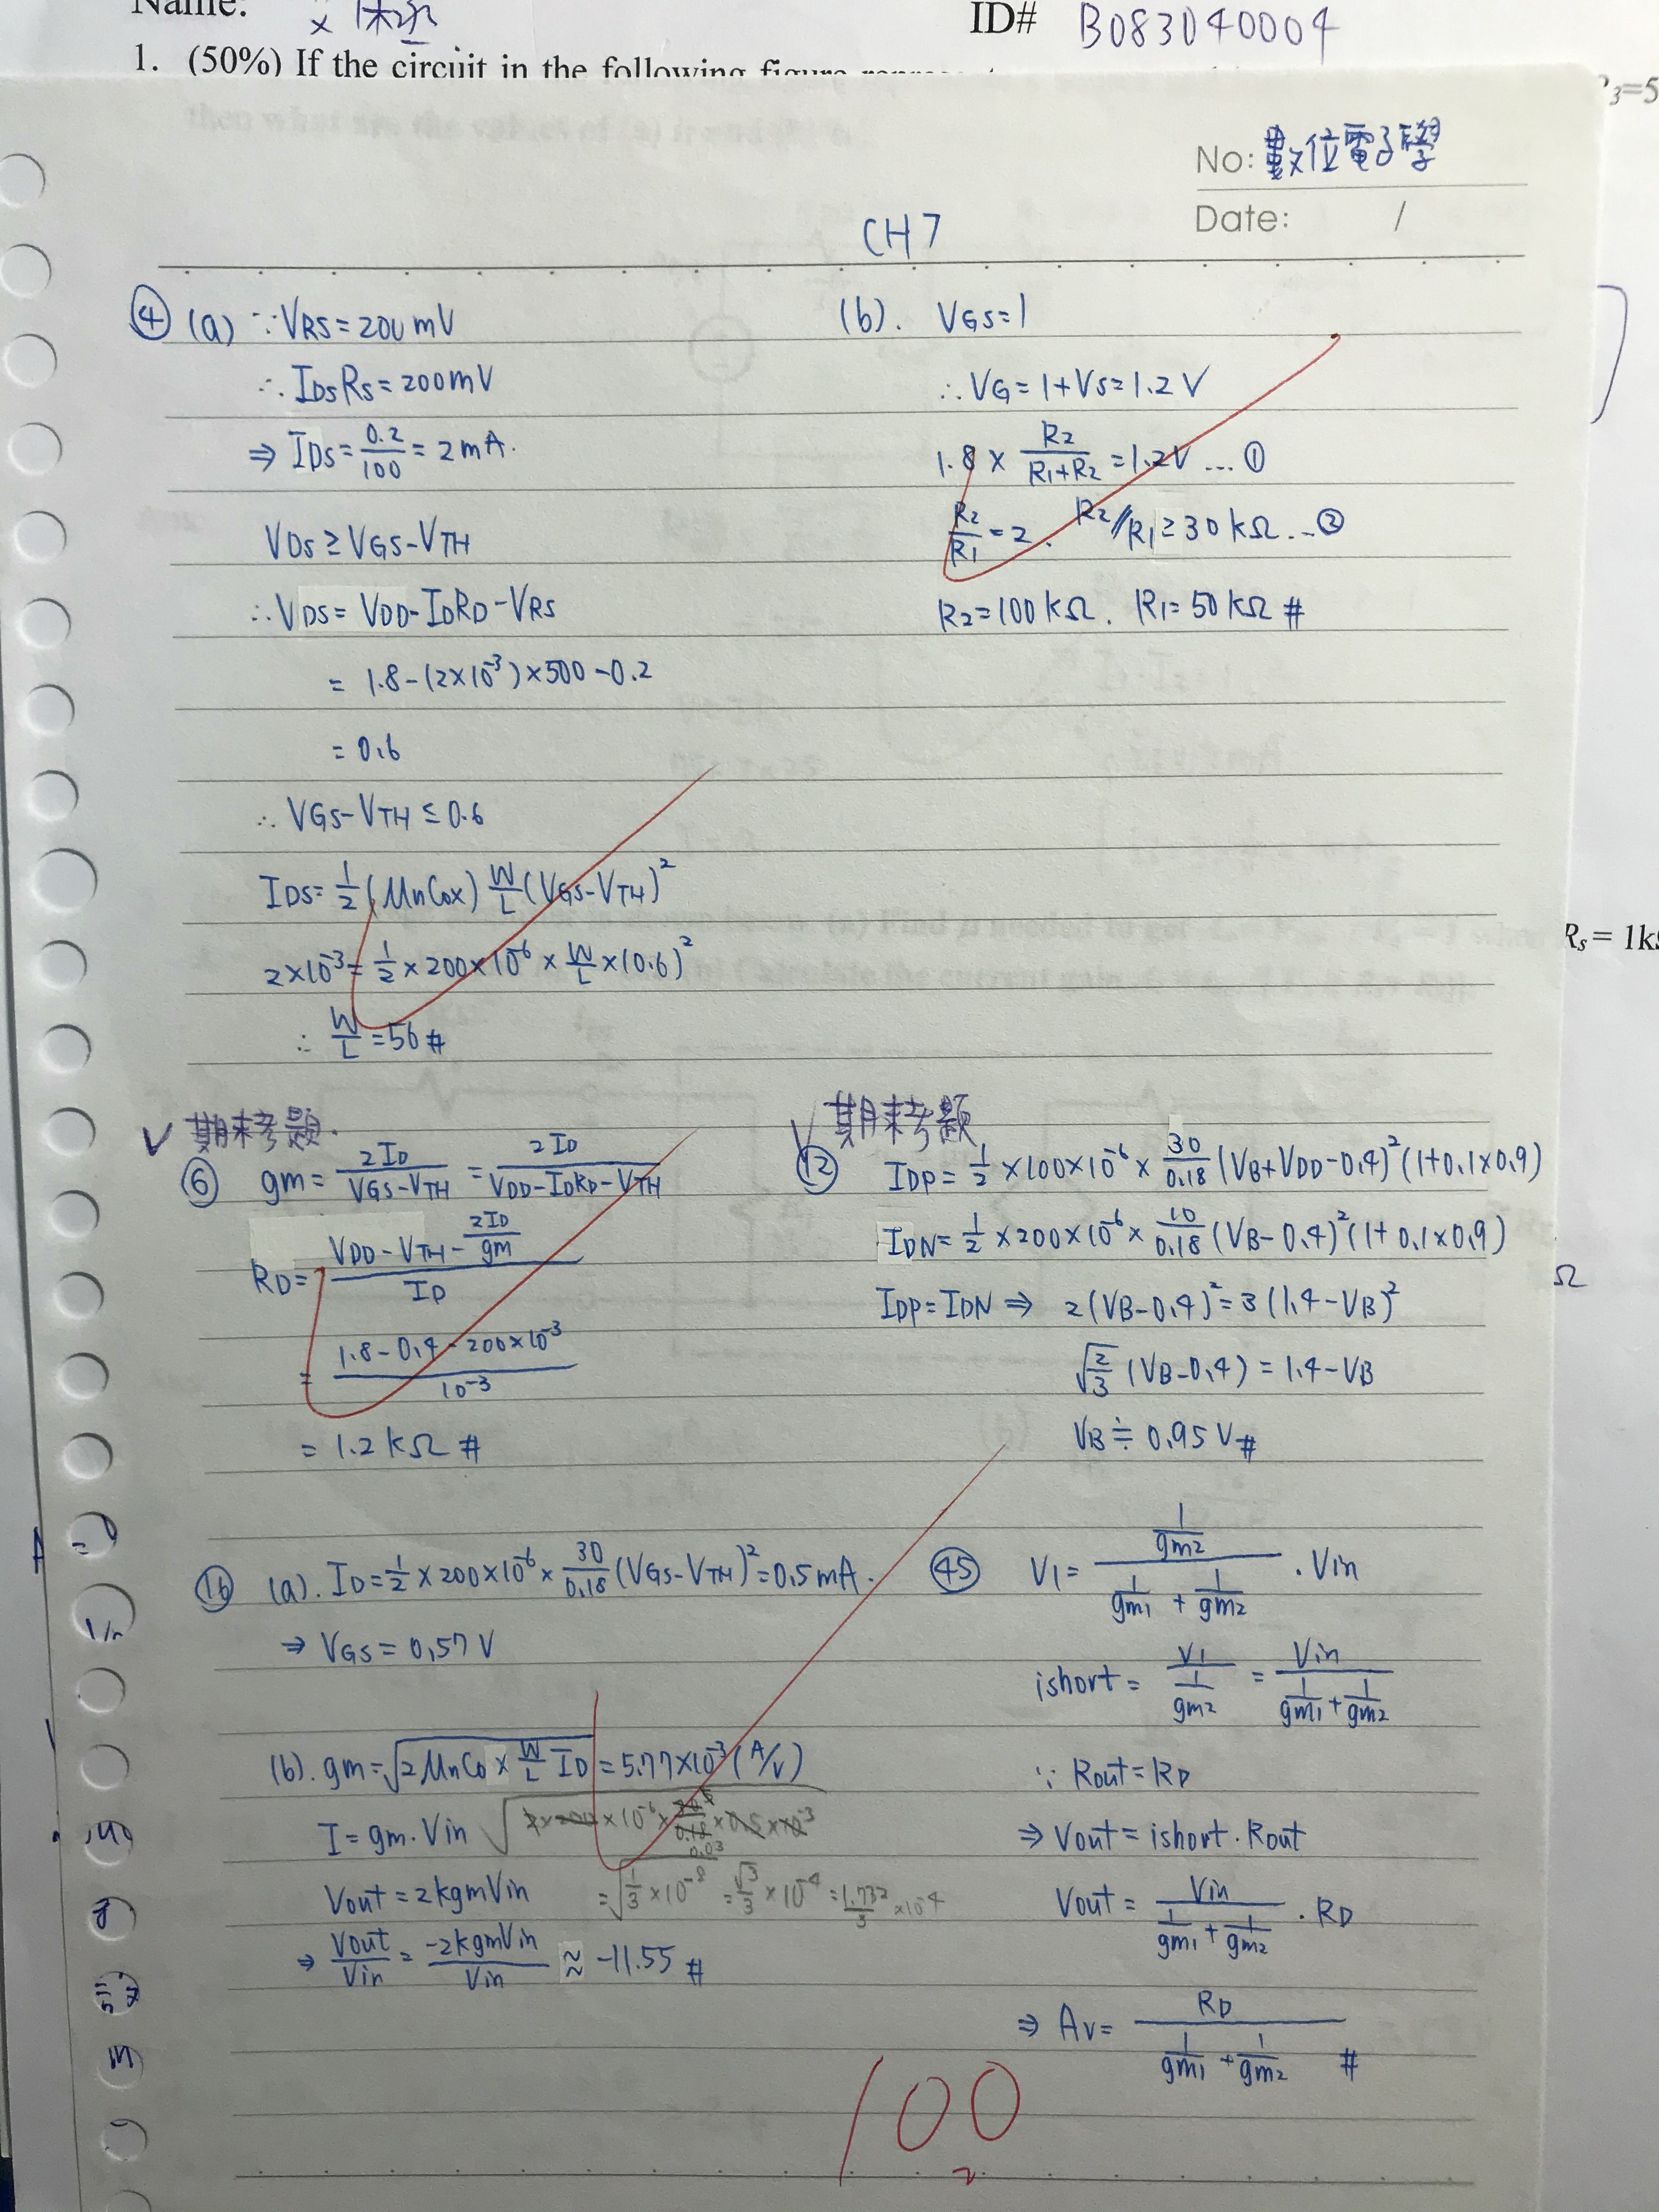 Name:
ID# B083040004
1. (50%) If the circuit in the following figure
R3=5
No: 數位電子學
Date: /
CH7
④ (a) ∵ VRS=200mV
∴ IDSRS=200mV
⇒ IDS=0.2/100=2mA.
VDS≥VGS-VTH
∴ VDS=VDD-IDRD-VRS
= 1.8-(2×10^-3)×500-0.2
= 0.6
∴ VGS-VTH≤0.6
IDS=1/2(MnCox)W/L(VGS-VTH)^2
2×10^-3=1/2×200×10^-6×W/L×(0.6)^2
∴ W/L=56 #
(b). VGS=1
∴ VG=1+VS=1.2V
1.8×R2/(R1+R2)=1.2V ... ①
R2/R1=2. R2//R1≥30kΩ... ②
R2=100kΩ. R1=50kΩ #
RS= 1k
✓ 期末考題.
⑥ gm=2ID/(VGS-VTH)=2ID/(VDD-IDRD-VTH)
RD=(VDD-VTH-2ID/gm)/ID
= (1.8-0.4-200×10^-3)/10^-3
= 1.2kΩ #
✓ 期末考題
⑫ IDP=1/2×100×10^-6×30/0.18(VB+VDD-0.4)^2(1+0.1×0.9)
IDN=1/2×200×10^-6×10/0.18(VB-0.4)^2(1+0.1×0.9)
IDP=IDN⇒ 2(VB-0.4)^2=3(1.4-VB)^2
√(2/3)(VB-0.4)=1.4-VB
VB≒0.95V #
Ω
⑯ (a). ID=1/2×200×10^-6×30/0.18(VGS-VTH)^2=0.5mA.
⇒ VGS=0.57V
(b). gm=√(2MnCo×W/L ID)=5.77×10^-3(A/V)
I=gm.Vin
=√(1/3×10^-8)=√3/3×10^-4=1.732/3×10^-4
Vout=2kgmVin
⇒ Vout/Vin=-2kgmVin/Vin≈-11.55 #
㊺ V1=(1/gm2)/(1/gm1+1/gm2).Vin
ishort=V1/(1/gm2)=Vin/(1/gm1+1/gm2)
∵ Rout=RD
⇒ Vout=ishort.Rout
Vout=Vin/(1/gm1+1/gm2).RD
⇒ Av=RD/(1/gm1+1/gm2) #
100